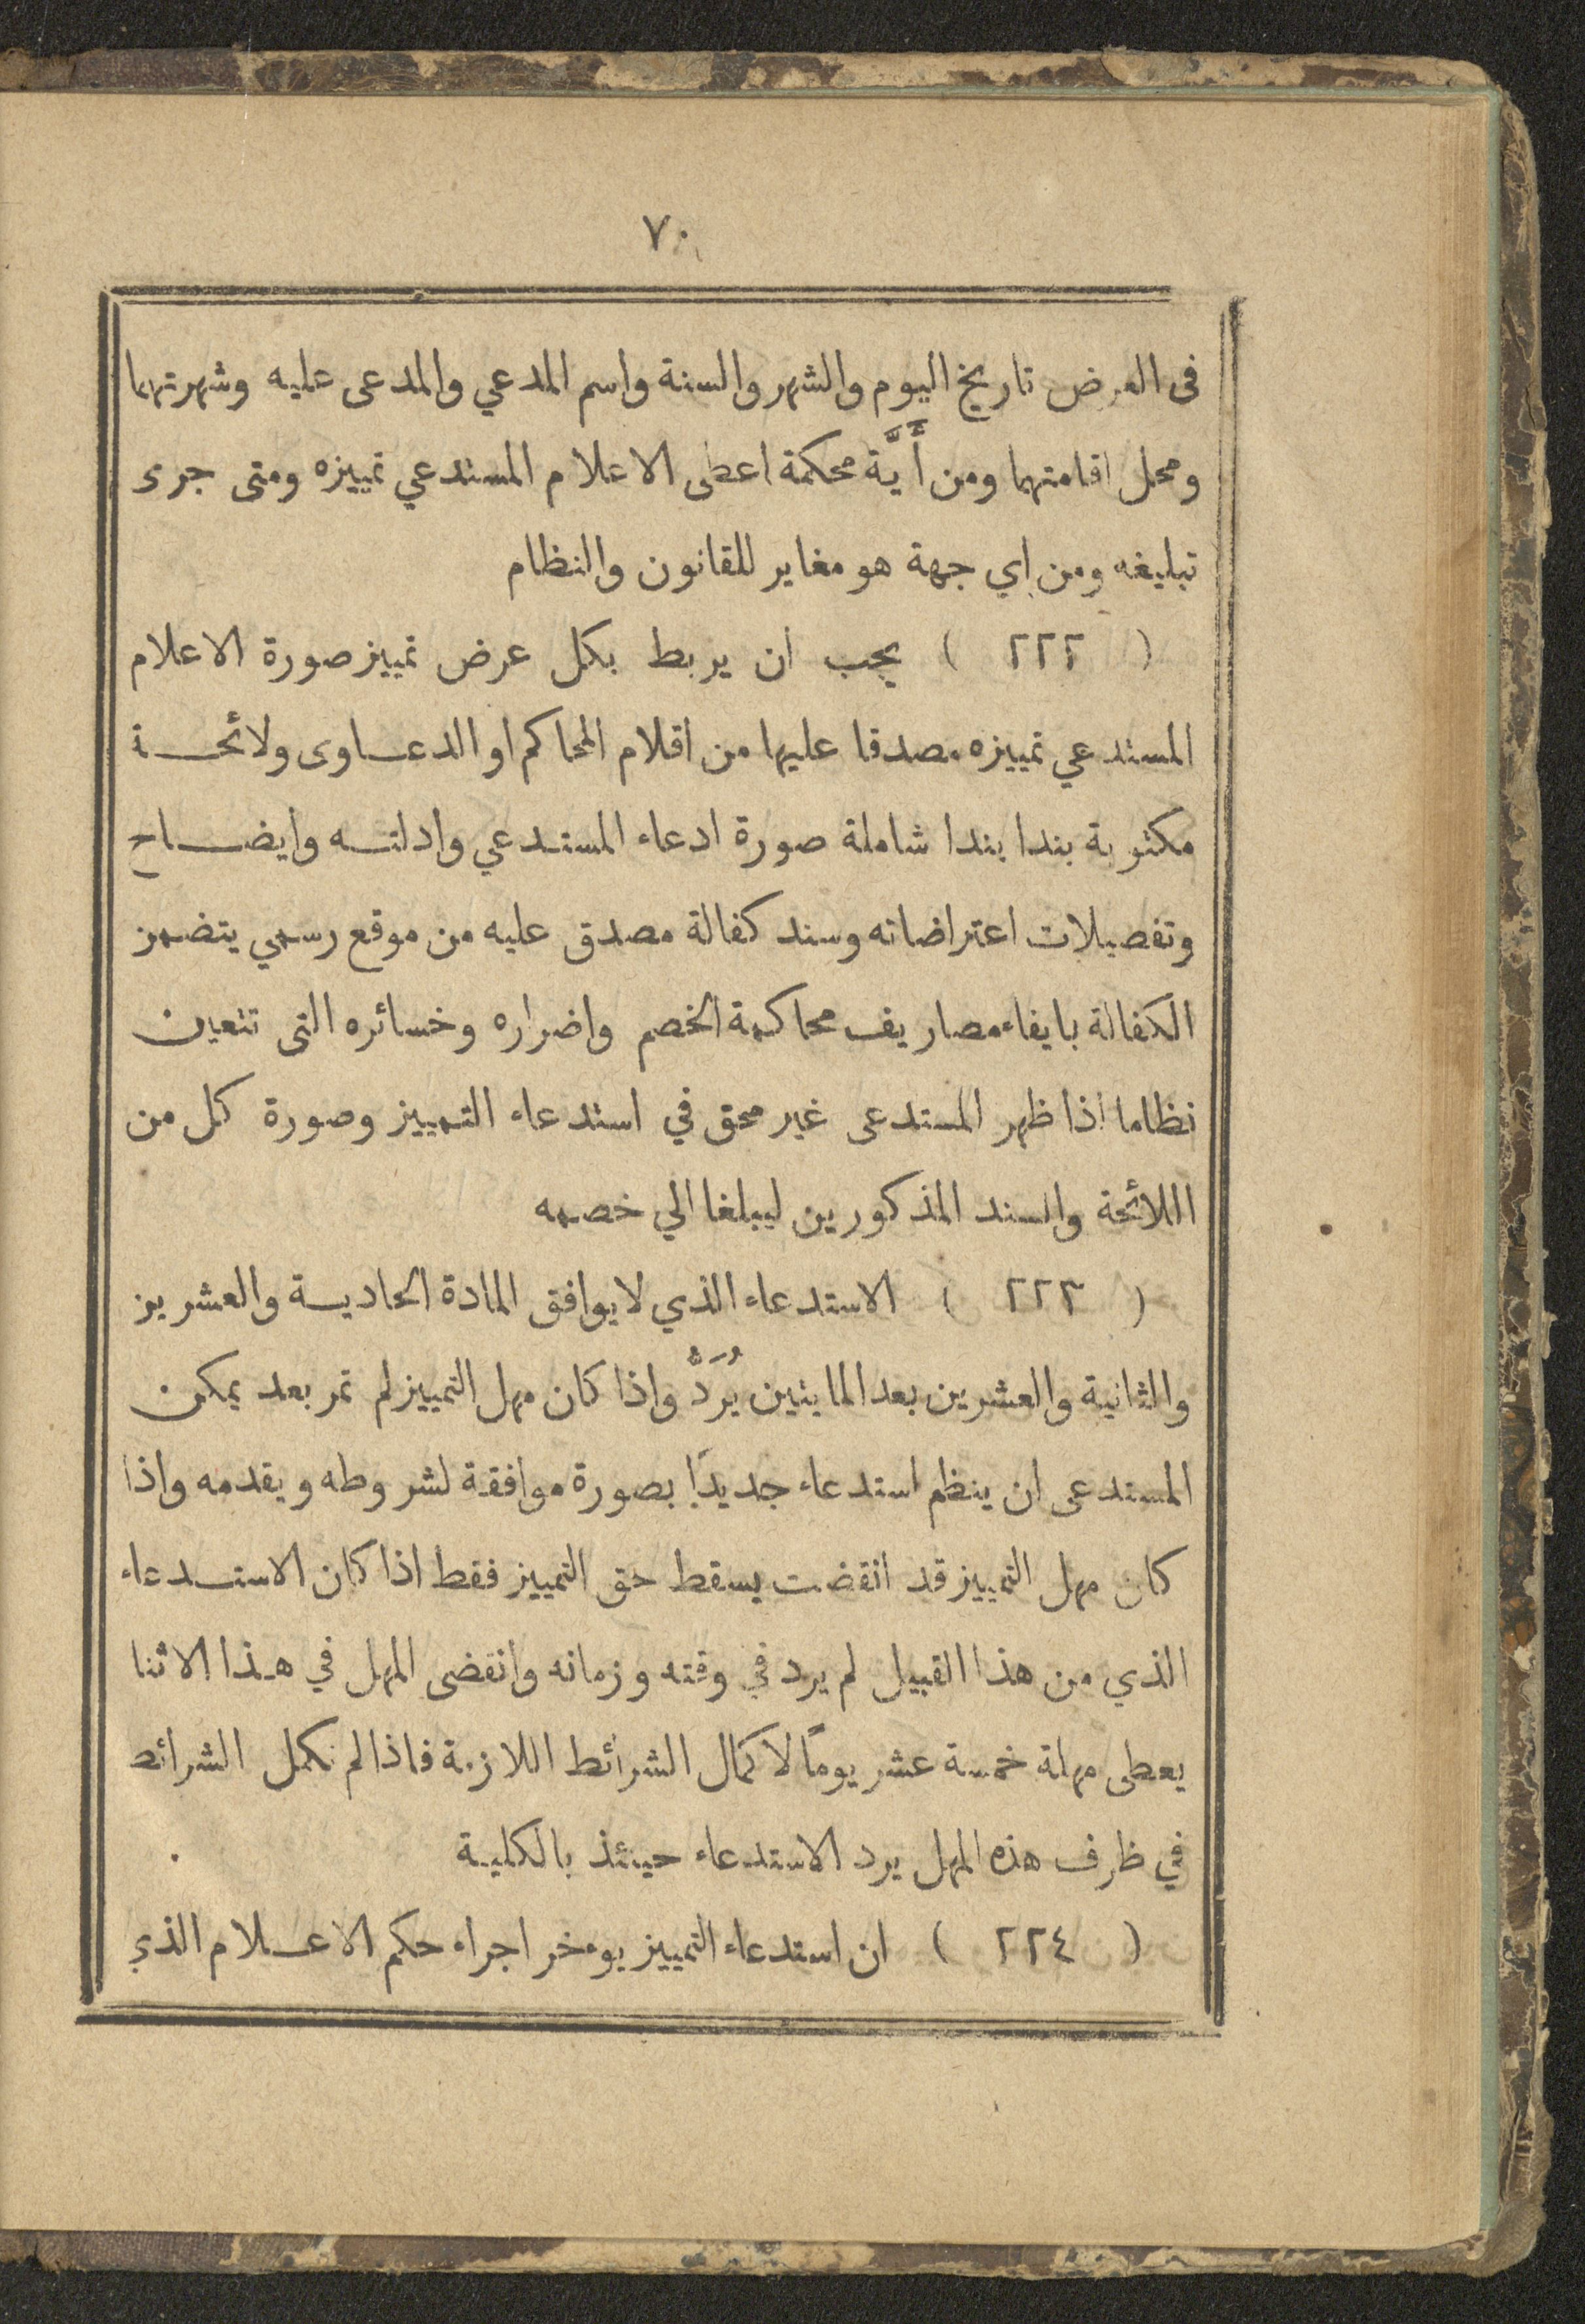 ٧٠
فى العرض تاريخ اليوم والشهر والسنة واسم المدعي والمدعى عليه وشهرتهما
ومحل اقامتهما ومن أَيَّة محكمة اعطى الاعلام المستدعي تمييزه ومتى جرى
تبليغه ومن اي جهة هو مغاير للقانون والنظام
( ٢٢٢ ) يجب ان يربط بكل عرض تمييز صورة الاعلام
المستدعي تمييزه مصدقا عليها من اقلام المحاكم او الدعاوى ولائحة
مكتوبة بندا بندا شاملة صورة ادعاء المستدعي وادلته وايضاح
وتفصيلات اعتراضاته وسند كفالة مصدق عليه من موقع رسمي يتضمن
الكفالة بايفاء مصاريف محاكمة الخصم واضراره وخسائره التى تتعين
نظاما اذا ظهر المستدعى غير محق في استدعاء التمييز وصورة كل من
اللائحة والسند المذكورين ليبلغا الي خصمه
( ٢٢٣ ) الاستدعاء الذي لا يوافق المادة الحادية والعشرين
والثانية والعشرين بعد المايتين يُرَدُّ واذا كان مهل التمييز لم تمر بعد يمكن
المستدعى ان ينظم استدعاء جديدًا بصورة موافقة لشروطه ويقدمه واذا
كان مهل التمييز قد انقضت يسقط حق التمييز فقط اذا كان الاستدعاء
الذي من هذا القبيل لم يرد في وقته وزمانه وانقضى المهل في هذا الاثنا
يعطى مهلة خمسة عشر يومًا لاكمال الشرائط اللازمة فاذا لم تكمل الشرائط
في ظرف هذه المهل يرد الاستدعاء حينئذ بالكلية
( ٢٢٤ ) ان استدعاء التمييز يوءخر اجراء حكم الاعلام الذي